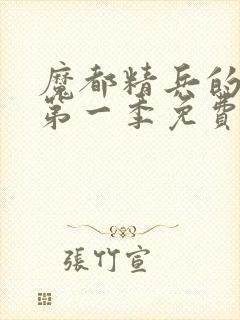 魔都精兵的
第一季免費
張竹宣